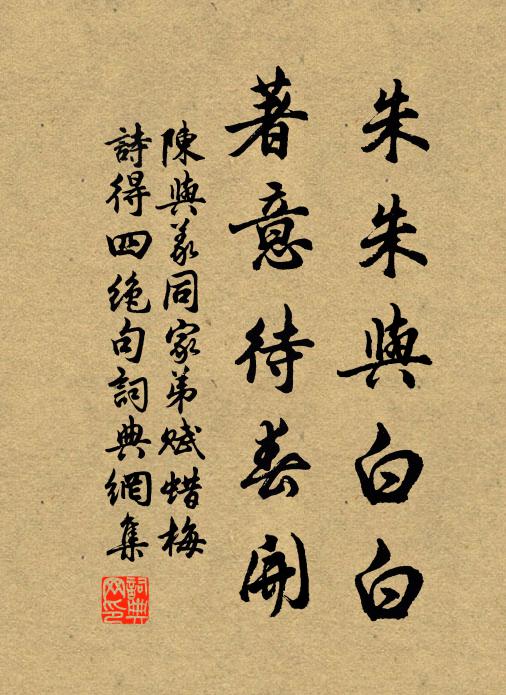 朱朱與白白
著意待春開
陳與義同家弟賦蜡梅
詩得四絶句詞典網集
詞典網印